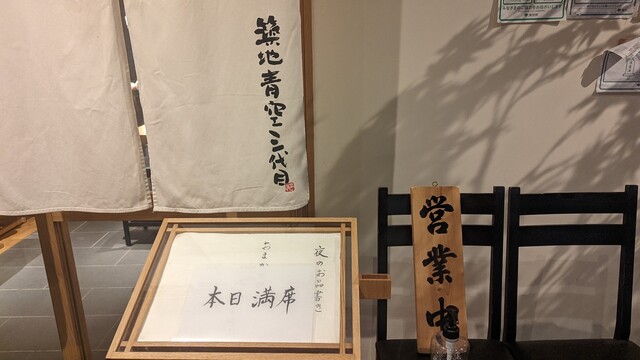 築地青空三代目
夜のお品書き
おまか
本日満席
営業中